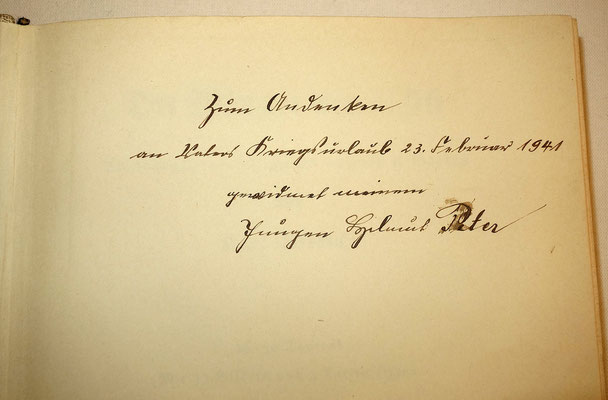 Zum Andenken
an Vaters Kriegsurlaub 23. Februar 1941
gewidmet meinem
Jungen Helmut Peter